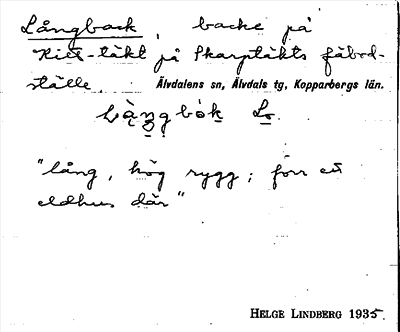 Långback, backe på
täkt på Skarptäkts fäbod-
ställe. Älvdalens sn, Älvdals tg, Kopparbergs län.
"lång, hög rygg; förr ett
eldhus där"
HELGE LINDBERG 1935.